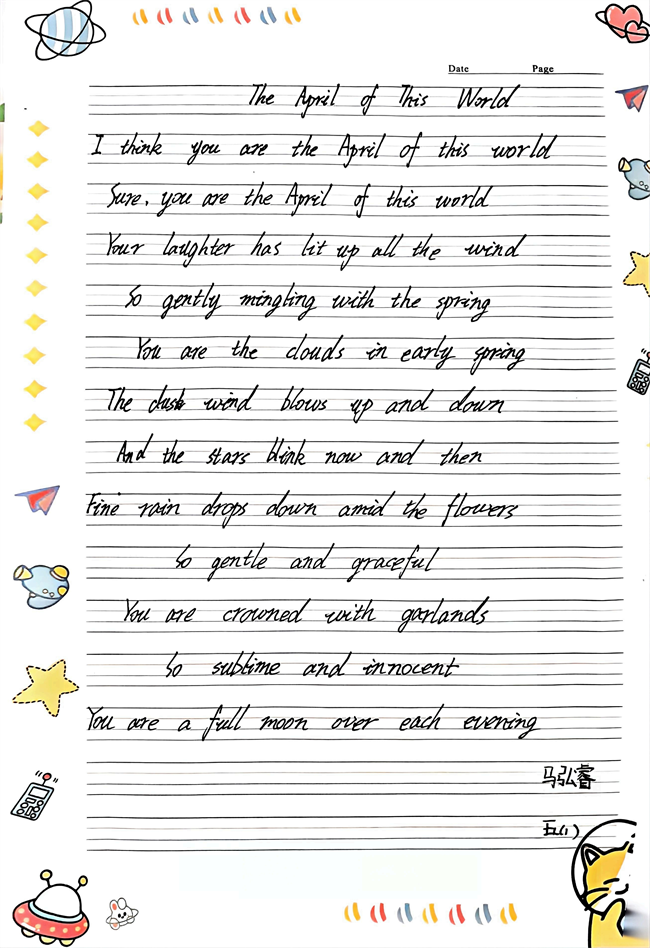 Date Page
The April of This World
I think you are the April of this world
Sure, you are the April of this world
Your laughter has lit up all the wind
So gently mingling with the spring
You are the clouds in early spring
The dusk wind blows up and down
And the stars blink now and then
Fine rain drops down amid the flowers
So gentle and graceful
You are crowned with garlands
So sublime and innocent
You are a full moon over each evening
马弘睿
五(1)